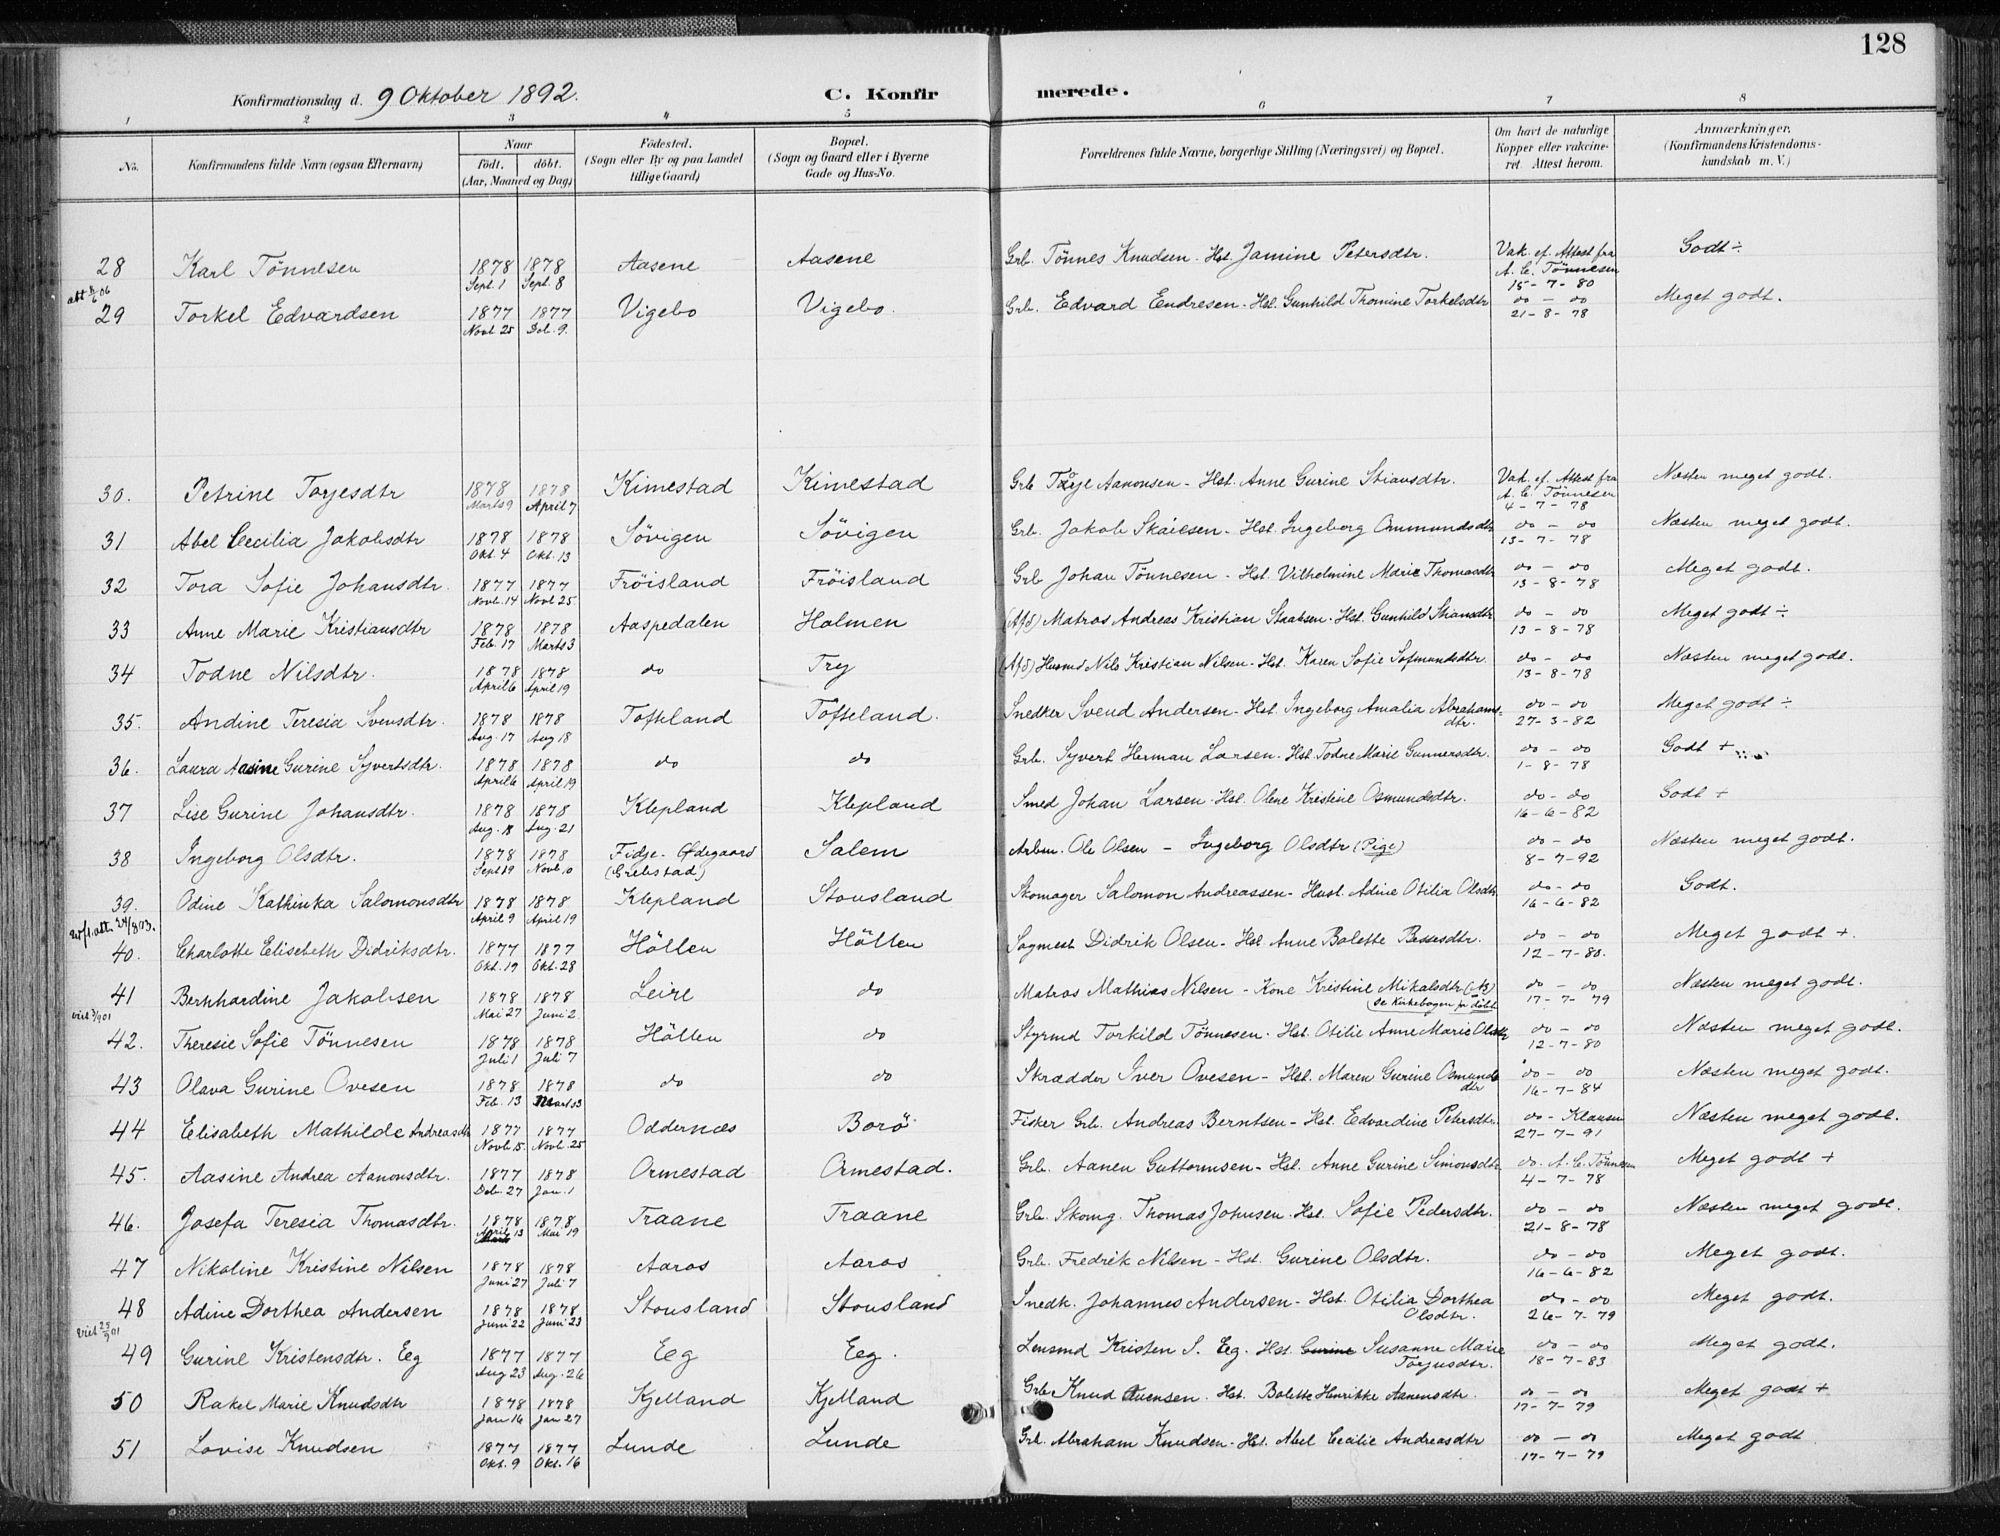 128
Konfirmationsdag d. 9 Oktober 1892. C. Konfirmerede.
1 2 3 4 5 6 7 8
No. Konfirmandens fulde Navn (ogsaa Efternavn) Naar födt. döbt. (Aar, Maaned og Dag) Födested. (Sogn eller By og paa Landet tillige Gaard) Bopæl. (Sogn og Gaard eller i Byerne Gade og Hus-No. Forældrenes fulde Navne, borgerlige Stilling (Næringsvei) og Bopæl. Om havt de naturlige Kopper eller vakcineret. Attest herom. Anmærkninger. (Konfirmandens Kristendomskundskab m. V.)
28 Karl Tönnesen 1878 Sept. 1 1878 Sept. 8 Aasene Aasene Grb. Tönnes Knudsen - Hst. Jamine Petersdtr. Vak. ef. Attest fra A. C. Tönnesen 15-7-80 Godt ÷
att 6/6 06
29 Torkel Edvardsen 1877 Novb. 25 1877 Dcb. 9. Vigebo Vigebo. Grb. Edvard Endresen - Hst. Gunhild Thomine Torkelsdtr do - do 21-8-78 Meget godt.
30. Petrine Torjesdtr 1878 Marts 9 1878 April 7 Kimestad Kimestad Grb Törje Aanonsen - Hst. Anne Gurine Stiansdtr. Vak. ef. Attest fra A. C. Tönnesen 4-7-78 Næsten meget godt.
31 Abel Cecilia Jakobsdtr 1878 Okt. 4 1878 Okt. 13 Sövigen Sövigen Grb. Jakob Skaiesen - Hst. Ingeborg Ommundsdtr do - do 13-7-78 Næsten meget godt.
32 Tora Sofie Johansdtr. 1877 Novb. 14 1877 Novb 25. Fröisland Fröisland Grb Johan Tönnesen - Hst. Vilhelmine Marie Thomasdtr do - do 13-8-78 Meget godt.
33 Anne Marie Kristiansdtr 1878 Feb. 17 1878 Marts 3 Aaspedalen Holmen (Afd) Matros Andreas Kristian Staaksen - Hst. Gunhild Stiansdtr do - do 13-8-78 Meget godt ÷
34 Todne Nilsdtr. 1878 April 6 1878 April 19 do Try (Afd) Husmd Nils Kristian Nilsen - Hst. Karen Sofie Sofmundsdtr. do - do 13-8-78 Næsten meget godt.
35. Andine Teresia Svensdtr. 1878 Aug. 17 1878 Aug 18 Tofteland Tofteland. Snedker Svend Andersen - Hst. Ingeborg Amalia Abrahamsdtr. do - do 27-3-82 Meget godt ÷
36. Laura Aasine Gurine Syvertsdtr. 1878 April 6 1878 April 19 do do Grb. Syvert Herman Larsen - Hst. Todne Marie Gunnersdtr. do - do 1-8-78 Godt +
37 Lise Gurine Johansdtr. 1878 Aug. 18 1878 Aug. 21 Klepland Klepland Smed Johan Larsen - Hst. Olene Kristine Osmundsdtr. do - do 16-6-82 Godt +
38 Ingeborg Olsdtr. 1878 Sept 19 1878 Novb. 10 Fidje- Ødegaard (Grebstad) Salem Arbm. Ole Olsen - Ingeborg Olsdtr (Pige) do - do 8-7-92 Næsten meget godt.
39. Odine Kathinka Salomonsdtr 1878 April 9 1878 April 19 Klepland Stousland Skomager Salomon Andreassen - Hust. Adine Otilia Olsdtr do - do 16-6-82 Godt.
40. Charlotte Elisebeth Didriksdtr. 1877 Okt. 19 1877 Okt. 28 Höllen Höllen Sagmest Didrik Olsen - Hst Anne Bolette Bessesdtr. do - do 12-7-80. Meget godt +.
41 Bernhardine Jakobsen 1878 Mai 27 1878 Juni 2 Leire do Matros Mathias Nilsen - Kone Kristine Mikalsdtr (se Kirkebogen for döbt do - do 17-7-79 Næsten meget godt.
viet 3/9 01
42. Theresie Sofie Tönnesen 1878 Juli 1 1878 Juli 7 Höllen do Styrmd Torkild Tönnesen - Hst. Otilie Anne Marie Olsdtr do - do 12-7-80 Næsten meget godt.
43 Olava Gurine Ovesen 1878 Feb. 13 1878 do do Skrædder Iver Ovesen - Hst. Maren Gurine Osmundsdtr do - do 16-7-84 Næsten meget godt.
44 Elisabeth Mathilde Andreasdtr 1877 Novb. 15. 1877 Novb. 25 Oddernæs Borö Fisker Grb. Andreas Berntsen - Hst. Edvardine Petersdtr. do - Klausen 27-7-91 Næsten meget godt.
45. Aasine Andrea Aanonsdtr. 1877 Dcb. 27 1878 Jan. 1 Ormestad Ormestad. Grb. Aanen Guttormsen - Hst. Anne Gurine Simonsdtr do. A. C. Tönnesen 4-7-78 Meget godt +
46. Josefa Teresia Thomasdtr. 1878 April 13 1878 Mai 19 Traane Traane Grb. Skomg. Thomas Johnsen - Hst. Sofie Pedersdtr. do - do 21-8-78 Næsten meget godt.
47 Nikoline Kristine Nilsen 1878 Juni 27 1878 Juli 7 Aaros Aaros Grb. Fredrik Nilsen - Hst. Gurine Olsdtr. do - do 16-6-82 Meget godt.
48 Adine Dorthea Andersen 1878 Juni 22 1878 Juni 23 Stousland Stousland Snedk. Johannes Andersen - Hst. Otilia Dorthea Olsdtr. do - do 26-7-79 Meget godt.
viet 25/9 01
49 Gurine Kristensdtr. Eeg 1877 Aug 23 1877 Aug. 26 Eeg Eeg. Lensmd Kristen S. Eeg. Hst. Gurine Susanne Marie Torjusdtr. do - do 18-7-83 Meget godt.
50 Rakel Marie Knudsdtr 1878 Jan 16 1878 Jan 27 Kjelland Kjelland Grb. Knud Auensen. Hst. Bolette Henrikke Aanensdtr. do - do 17-7-79 Meget godt +
51 Lovise Knudsen 1877 Okt. 9 1877 Okt. 16 Lunde Lunde Grb. Abraham Knudsen - Hst. Abel Cecilie Andreasdtr do - do 17-7-79 Meget godt